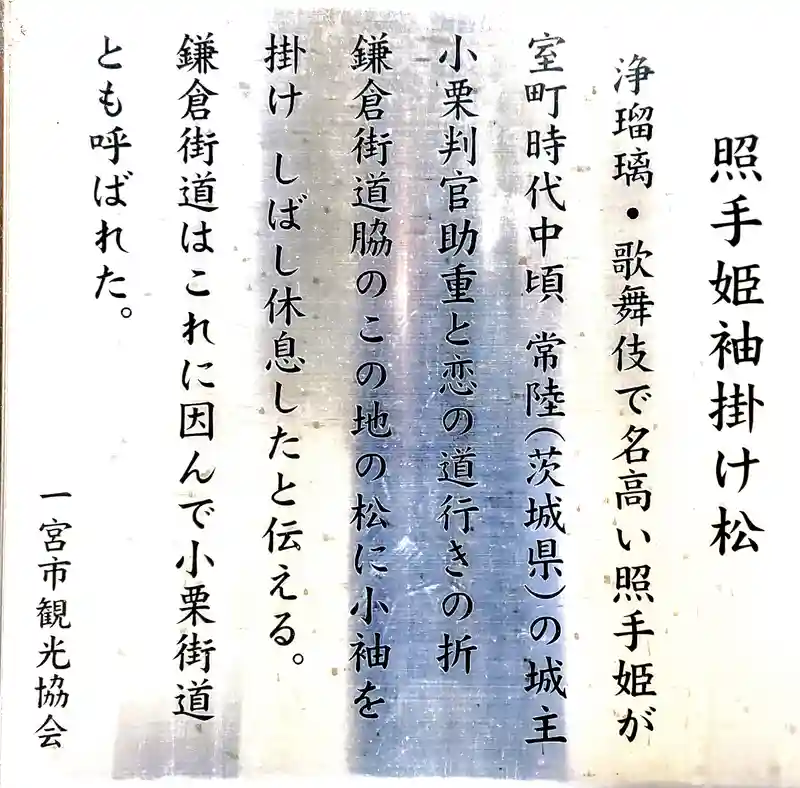 照手姫袖掛け松
浄瑠璃・歌舞伎で名高い照手姫が
室町時代中頃 常陸(茨城県)の城主
小栗判官助重と恋の道行きの折
鎌倉街道脇のこの地の松に小袖を
掛け しばし休息したと伝える。
鎌倉街道はこれに因んで小栗街道
とも呼ばれた。
一宮市観光協会